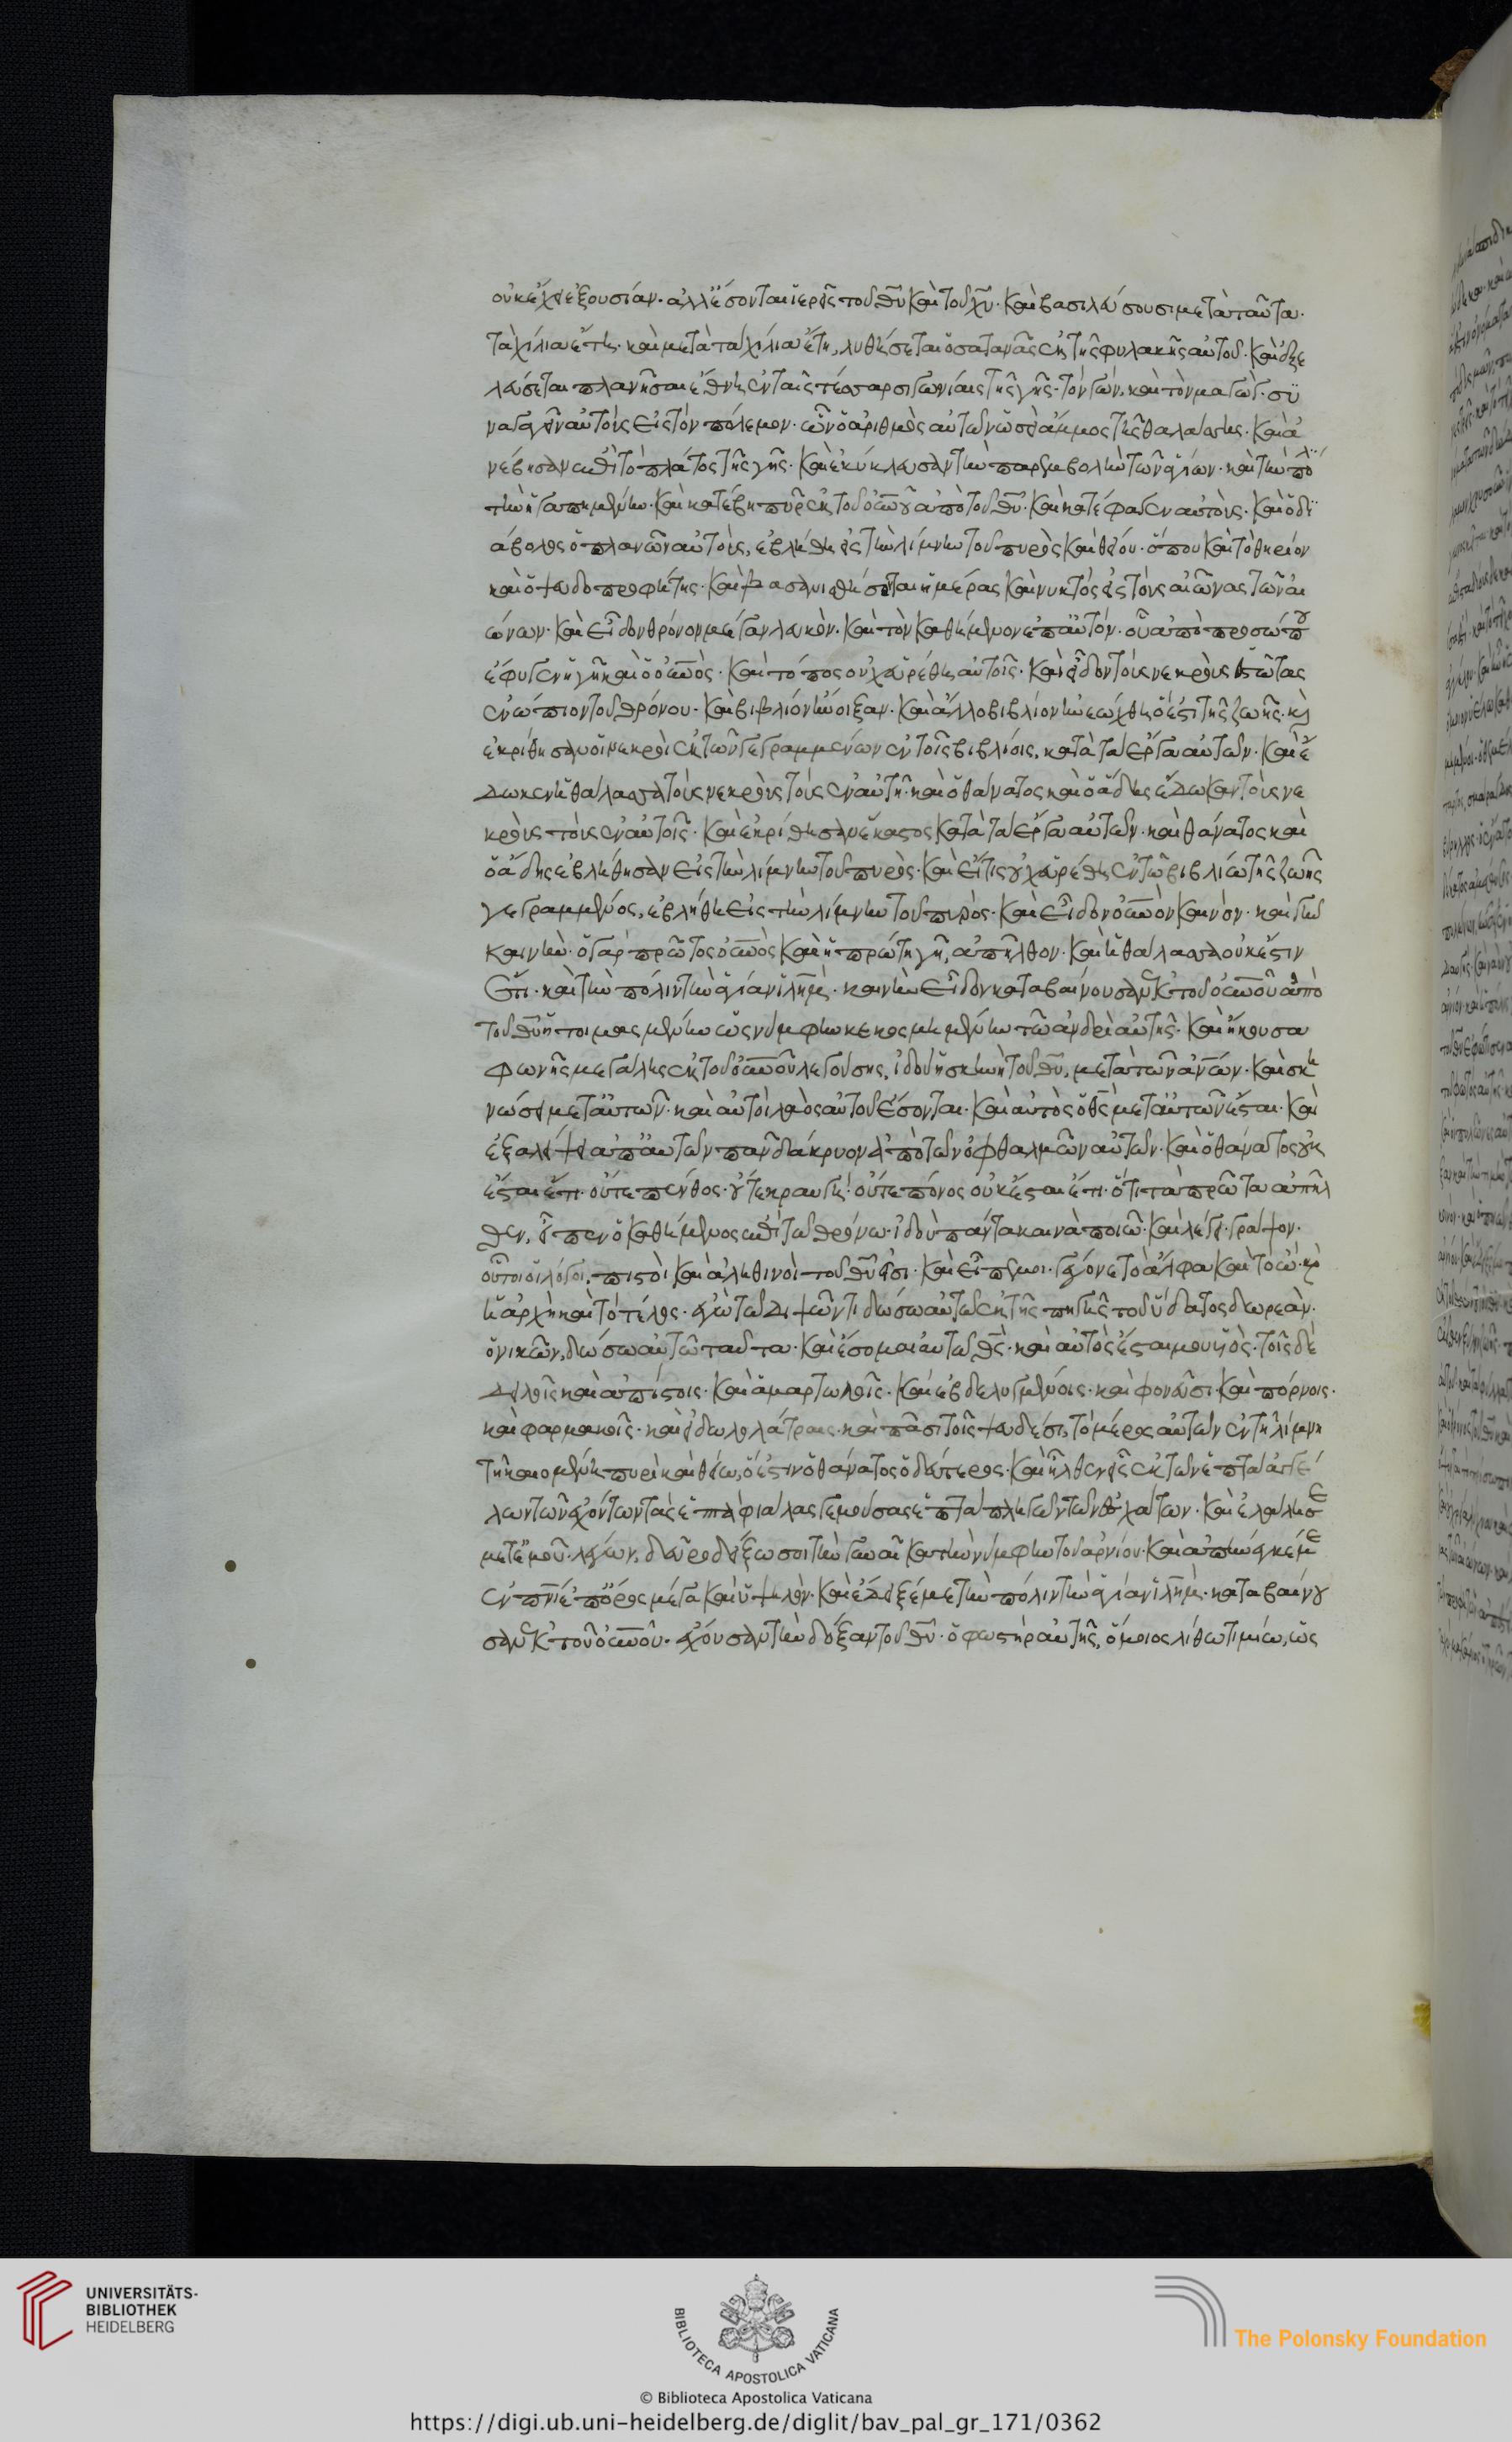 οὐκ ἔχει ἐξουσίαν· ἀλλ' ἔσονται ἱερεῖς τοῦ θῡ καὶ τοῦ χῡ· καὶ βασιλεύσουσι μετὰ ταῦτα·
τὰ χίλια ἔτη· καὶ μετὰ τὰ χίλια ἔτη, λυθήσεται ὁ σατανᾶς ἐκ τῆς φυλακῆς αὐτοῦ· καὶ ἐξε
λεύσεται πλανῆσαι ἔθνη ἐν ταῖς τέσσαρσι γωνίαις τῆς γῆς· τὸν γών, καὶ τὸν μαγώγ· συ
ναγαγεῖν αὐτοὺς εἰς τὸν πόλεμον· ὧν ὁ ἀριθμὸς αὐτῶν ὡσεὶ ἄμμος τῆς θαλάσσης· καὶ ἀ
νέβησαν ἐπὶ τὸ πλάτος τῆς γῆς· καὶ ἐκύκλευσαν τὴν παρεμβολὴν τῶν ἁγίων· καὶ τὴν πόλ
τὴν ἠγαπημένην· καὶ κατέβη πῦρ ἐκ τοῦ οὐνου ἀπὸ τοῦ θῡ· καὶ κατέφαγεν αὐτούς· καὶ ὁ δι
άβολος ὁ πλανῶν αὐτούς, ἐβλήθη εἰς τὴν λίμνην τοῦ πυρὸς καὶ θείου· ὅπου καὶ τὸ θηρίον
καὶ ὁ ψευδοπροφήτης· καὶ βασανισθήσονται ἡμέρας καὶ νυκτὸς εἰς τοὺς αἰῶνας τῶν αἰ
ώνων· καὶ εἶδον θρόνον μέγαν λευκόν· καὶ τὸν καθήμενον ἐπ' αὐτόν· οὗ ἀπὸ προσώπου
ἔφυγεν ἡ γῆ καὶ ὁ οὐνός· καὶ τόπος οὐχ εὑρέθη αὐτοῖς· καὶ εἶδον τοὺς νεκροὺς ἑστῶτας
ἐνώπιον τοῦ θρόνου· καὶ βιβλίον ἤνοιξαν· καὶ ἄλλο βιβλίον ἠνεώχθη ὅ ἐστι τῆς ζωῆς· κὶ
ἐκρίθησαν οἱ νεκροὶ ἐκ τῶν γεγραμμένων ἐν τοῖς βιβλίοις, κατὰ τὰ ἔργα αὐτῶν· καὶ ἔ
δωκεν ἡ θάλασσα τοὺς νεκροὺς τοὺς ἐν αὐτῇ· καὶ ὁ θάνατος καὶ ὁ ᾅδης ἔδωκαν τοὺς νε
κροὺς τοὺς ἐν αὐτοῖς· καὶ ἐκρίθησαν ἕκαστος κατὰ τὰ ἔργα αὐτῶν· καὶ θάνατος καὶ
ὁ ᾅδης ἐβλήθησαν εἰς τὴν λίμνην τοῦ πυρός· καὶ εἴ τις οὐχ εὑρέθη ἐν τῷ βιβλίω τῆς ζωῆς
γεγραμμένος, ἐβλήθη εἰς τὴν λίμνην τοῦ πυρός· καὶ εἶδον οὐνὸν καινόν· καὶ γῆν
καινήν· ὁ γὰρ πρῶτος οὐνὸς καὶ ἡ πρώτη γῆ, ἀπῆλθον· καὶ ἡ θάλασσα οὐκ ἔστιν
ἔτι· καὶ τὴν πόλιν τὴν ἁγίαν ἱλημ· καινὴν εἶδον καταβαίνουσαν ἐκ τοῦ οὐνοῦ ἀπὸ
τοῦ θῡ ἡτοιμασμένην ὡς νύμφην κεκοσμημένην τῷ ἀνδρὶ αὐτῆς· καὶ ἤκουσα
φωνῆς μεγάλης ἐκ τοῦ οὐνοῦ λεγούσης, ἰδοὺ ἡ σκηνὴ τοῦ θῡ, μετὰ τῶν ἀνων· καὶ σκη
νώσει μετ' αὐτῶν· καὶ αὐτοὶ λαὸς αὐτοῦ ἔσονται· καὶ αὐτὸς ὁ θς μετ' αὐτῶν ἔσται· καὶ
ἐξαλείψει ἀπ' αὐτῶν πᾶν δάκρυον ἀπὸ τῶν ὀφθαλμῶν αὐτῶν· καὶ ὁ θάνατος οὐκ
ἔσται ἔτι· οὔτε πένθος· οὔτε κραυγή· οὔτε πόνος οὐκ ἔσται ἔτι· ὅτι τὰ πρῶτα ἀπῆλ
θεν, εἶπεν ὁ καθήμενος ἐπὶ τῷ θρόνω· ἰδοὺ πάντα καινὰ ποιῶ· καὶ λέγει· γράψον·
οὗτοι οἱ λόγοι, πιστοὶ καὶ ἀληθινοὶ τοῦ θῡ εἰσι· καὶ εἶπέ μοι· γέγονε τὸ ἄλφα καὶ τὸ ὦ· κὶ
ἡ ἀρχὴ καὶ τὸ τέλος· ἐγὼ τῷ διψῶντι δώσω αὐτῷ ἐκ τῆς πηγῆς τοῦ ὕδατος δωρεάν·
ὁ νικῶν, δώσω αὐτῷ ταῦτα· καὶ ἔσομαι αὐτῷ θς· καὶ αὐτὸς ἔσται μου υἱός· τοῖς δὲ
δειλοῖς καὶ ἀπίστοις· καὶ ἁμαρτωλοῖς· καὶ ἐβδελυγμένοις· καὶ φονεῦσι καὶ πόρνοις·
καὶ φαρμακοῖς· καὶ εἰδωλολάτραις· καὶ πᾶσι τοῖς ψευδέσι, τὸ μέρος αὐτῶν ἐν τῇ λίμνη
τῇ καιομένη πυρὶ καὶ θείω, ὅ ἐστιν ὁ θάνατος ὁ δεύτερος· καὶ ἦλθεν εἷς ἐκ τῶν ἑπτὰ ἀγγέ
λων τῶν ἐχόντων τὰς ἑπτὰ φιάλας γεμούσας ἑπτὰ πληγῶν τῶν ἐσχάτων· καὶ ἐλάλησε
μετ' ἐμοῦ· λέγων, δεῦρο δείξω σοι τὴν γυναῖκα τὴν νύμφην τοῦ ἀρνίου· καὶ ἀπήνεγκέ με
ἐν πνι ἐπ' ὄρος μέγα καὶ ὑψηλόν· καὶ ἔδειξέ με τὴν πόλιν τὴν ἁγίαν ἱλημ· καταβαίνου
σαν ἐκ τοῦ οὐνοῦ· ἔχουσαν τὴν δόξαν τοῦ θῡ· ὁ φωστὴρ αὐτῆς, ὅμοιος λίθω τιμίω, ὡς
UNIVERSITÄTS-
BIBLIOTHEK
HEIDELBERG
BIBLIOTECA APOSTOLICA VATICANA
The Polonsky Foundation
© Biblioteca Apostolica Vaticana
https://digi.ub.uni-heidelberg.de/diglit/bav_pal_gr_171/0362